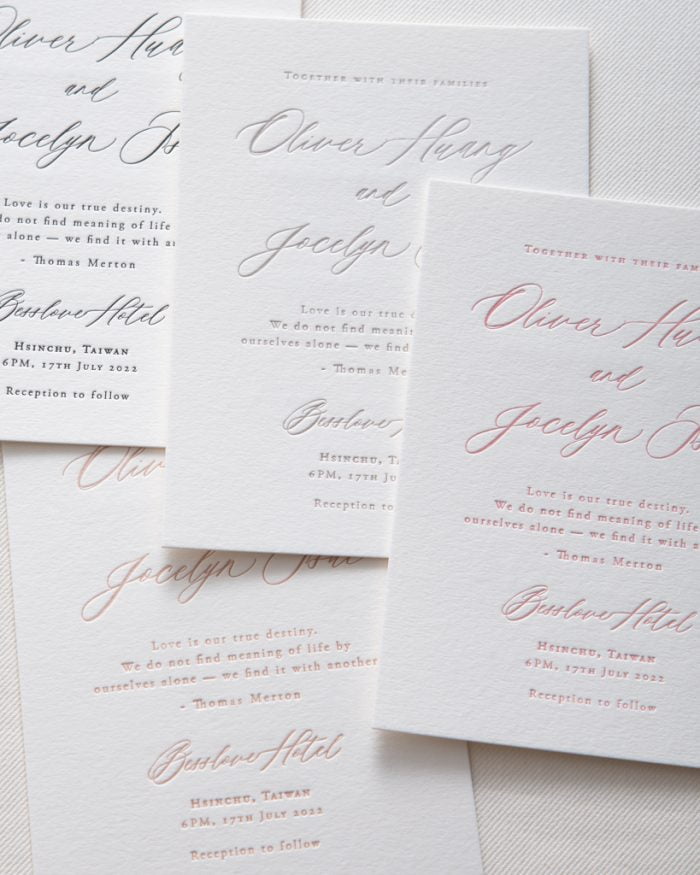 Oliver
and
Jocelyn
Love is our true destiny.
do not find meaning of life
alone — we find it with
- Thomas Merton
Besslove Hotel
Hsinchu, Taiwan
6PM, 17th July 2022
Reception to follow
Together with their families
Oliver Huang
and
Jocelyn
Love is our true
We do not find
ourselves alone — we find
- Thomas
Besslove
Hsinchu,
6PM, 17th
Reception to
Together with their
Oliver
and
Jocelyn
Love is our true destiny.
We do not find meaning of life
ourselves alone — we find it with
- Thomas Merton
Besslove Hotel
Hsinchu, Taiwan
6PM, 17th July 2022
Reception to follow
Jocelyn Tsai
Love is our true destiny.
We do not find meaning of life by
ourselves alone — we find it with another
- Thomas Merton
Besslove Hotel
Hsinchu, Taiwan
6PM, 17th July 2022
Reception to follow